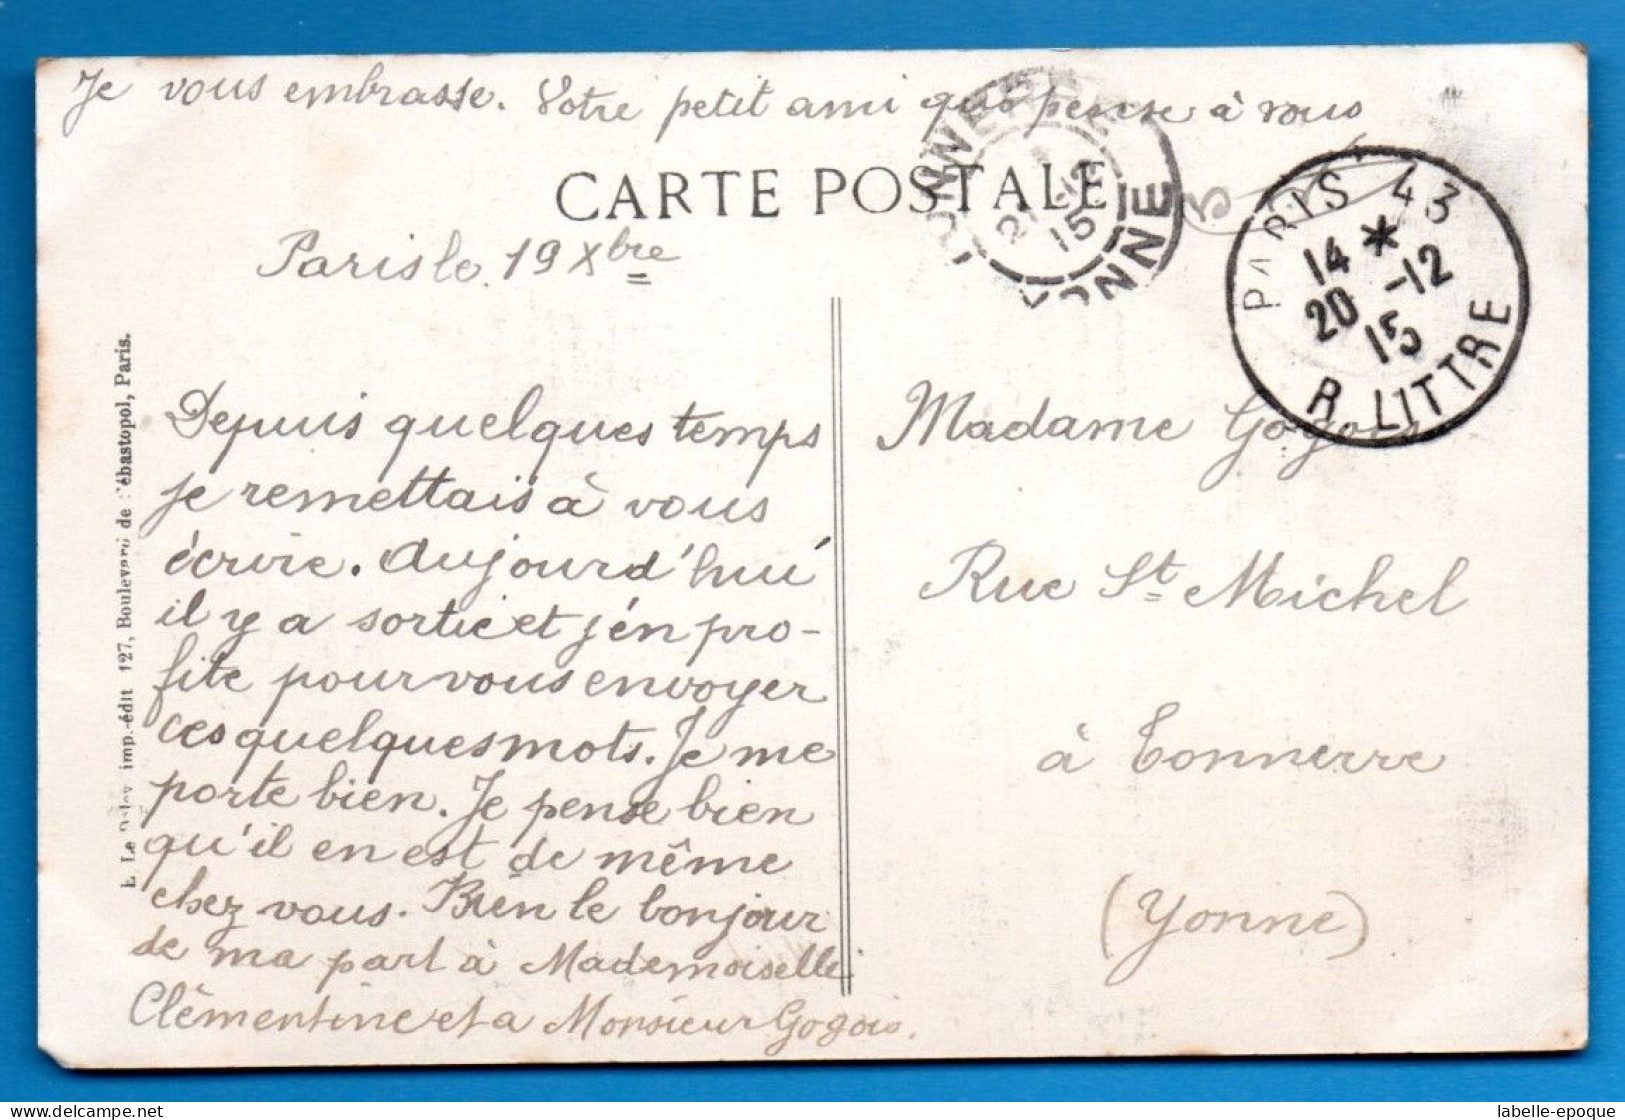 Je vous embrasse. Votre petit ami qui pense à vous
CARTE POSTALE
Paris le 19 Xbre
Depuis quelques temps
je remettais à vous
écrire. Aujourd'hui
il y a sortie et j'en pro-
fite pour vous envoyer
ces quelques mots. Je me
porte bien. Je pense bien
qu'il en est de même
chez vous. Bien le bonjour
de ma part à Mademoiselle
Clémentine et a Monsieur Gogois.
E. Le imp.-édit 127, Boulevard de Sébastopol, Paris.
TONNERRE
21 -12
15
YONNE
PARIS 43
14 *
20 -12
15
R. LITTRE
Madame Gogois
Rue St Michel
à Tonnerre
(Yonne)
labelle-epoque